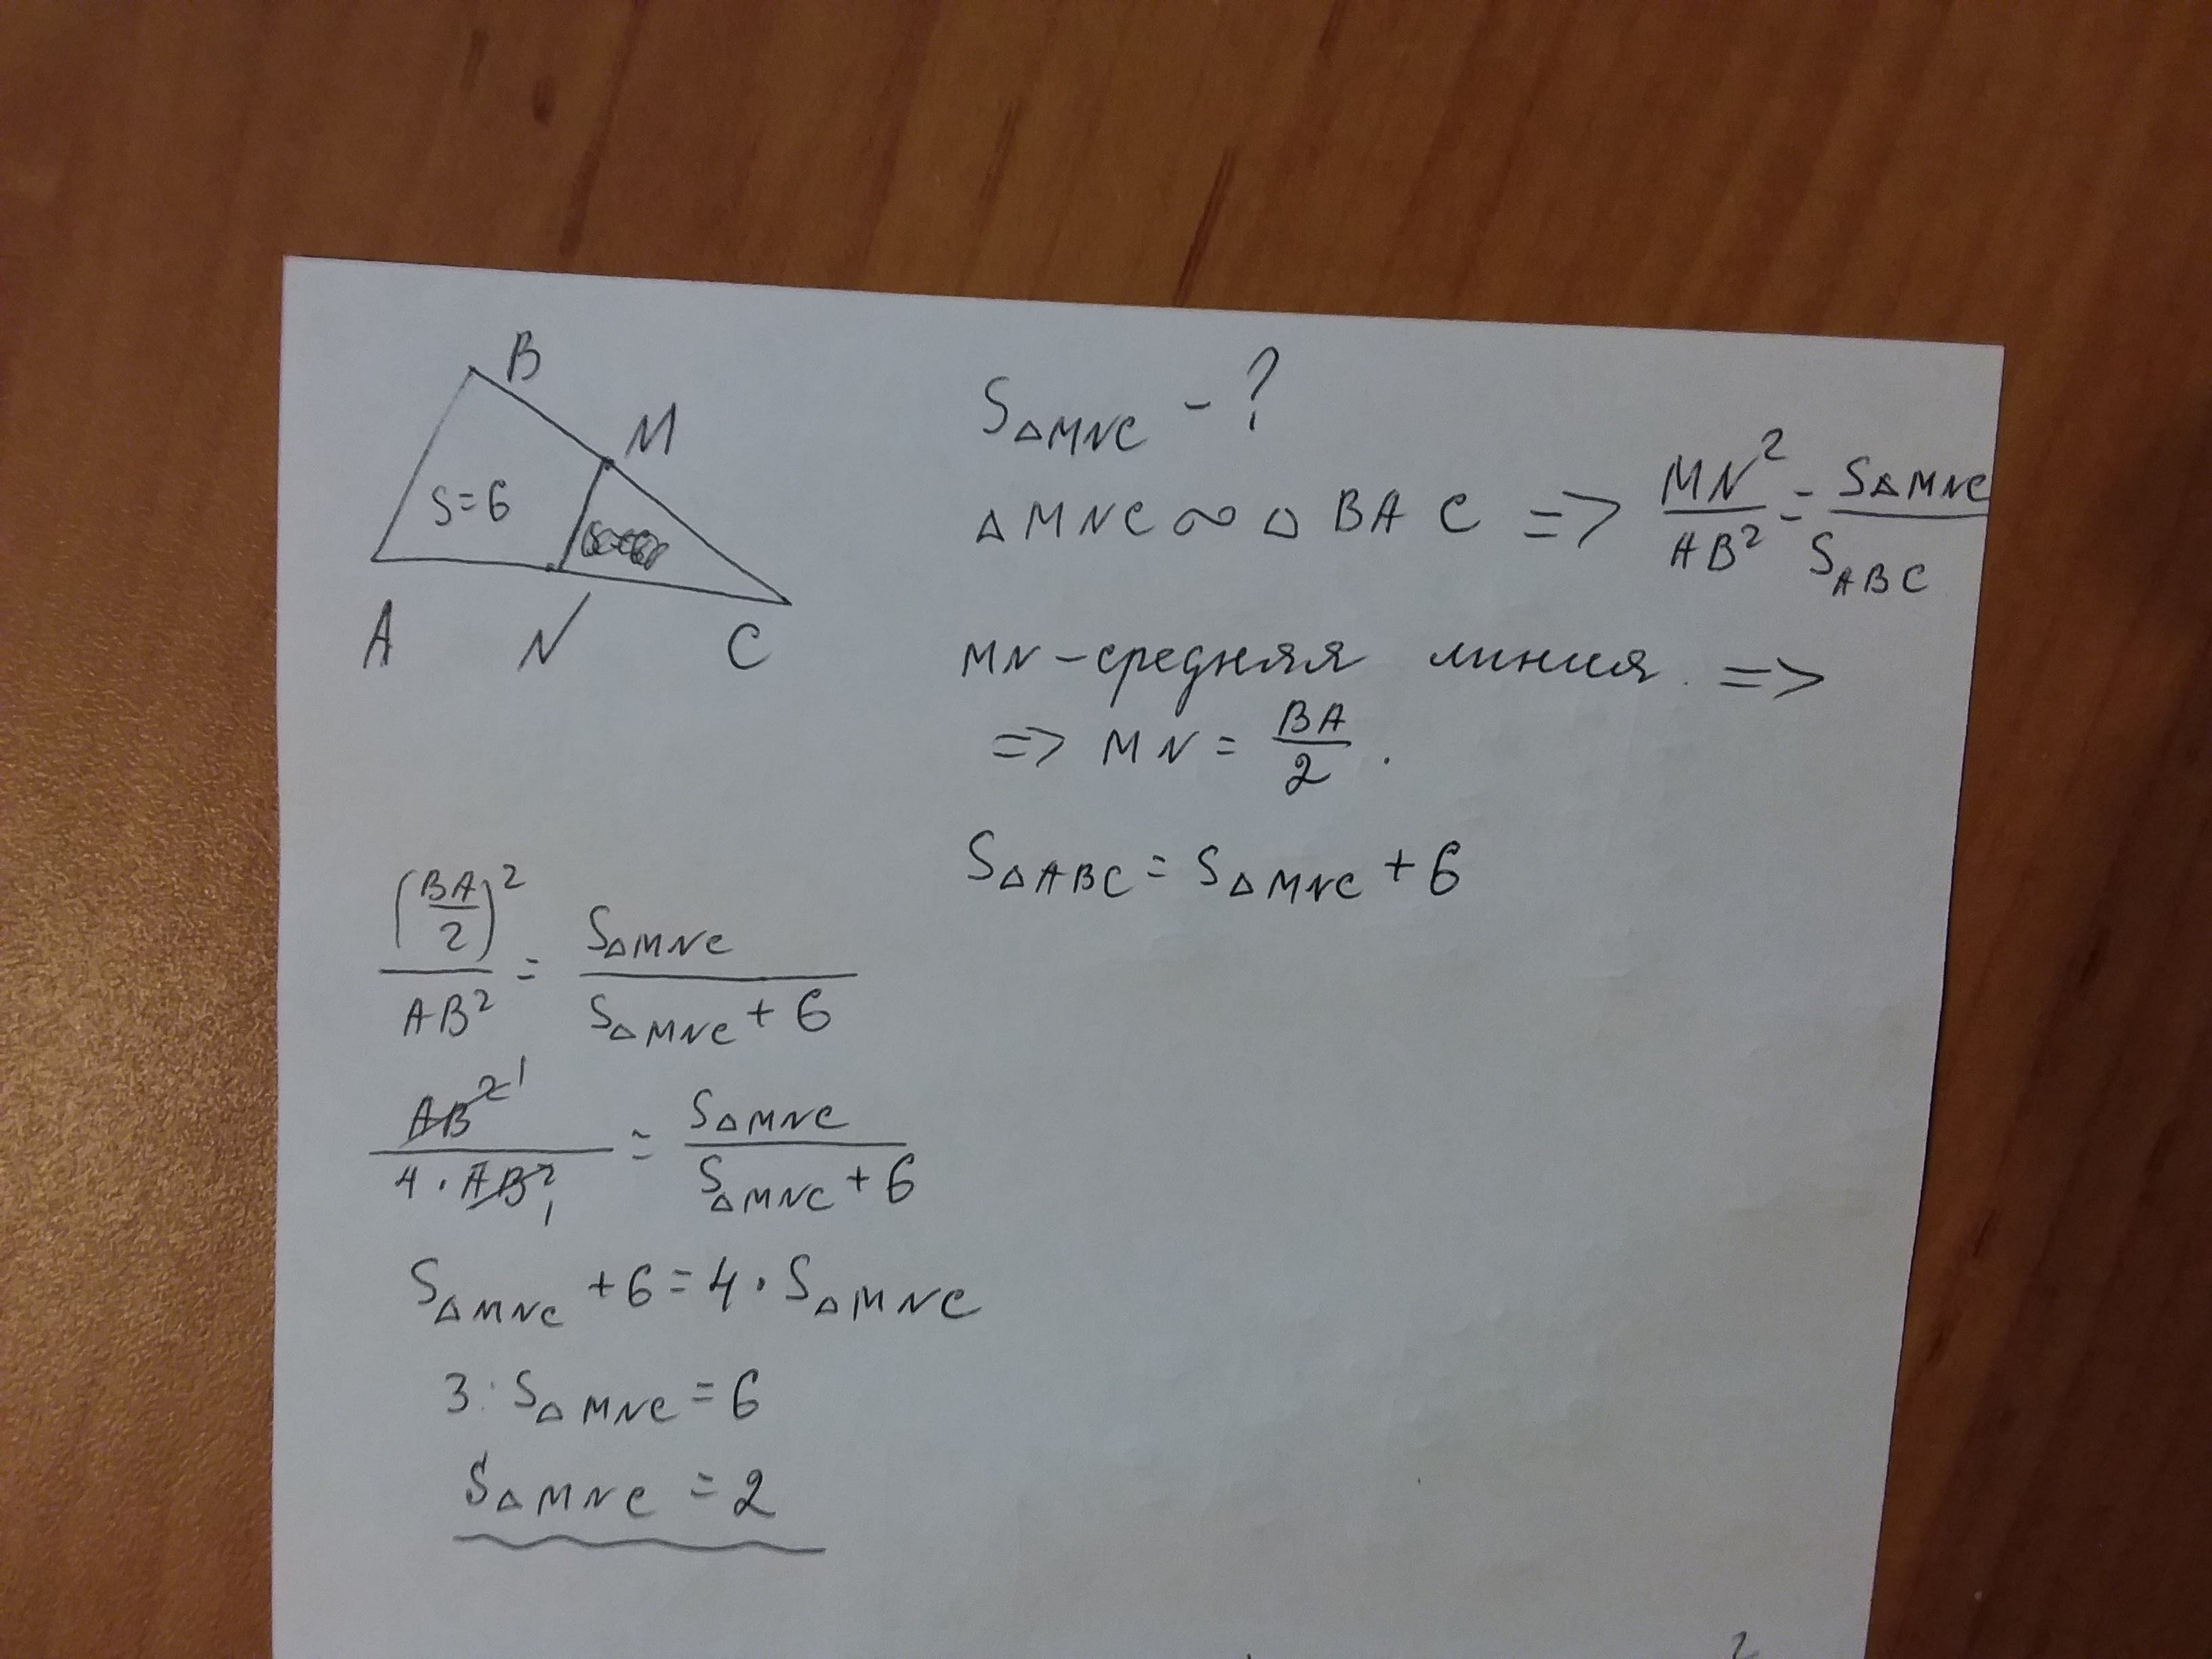 B
M
S=6
A N C
S△MNC - ?
△MNC ∾ △BAC => MN²/AB² = S△MNC/S_ABC
MN - средняя линия =>
=> MN = BA/2.
S△ABC = S△MNC + 6
(BA/2)²/AB² = S△MNC/(S△MNC + 6)
AB²¹/(4 · AB²₁) = S△MNC/(S△MNC + 6)
S△MNC + 6 = 4 · S△MNC
3 · S△MNC = 6
S△MNC = 2
2